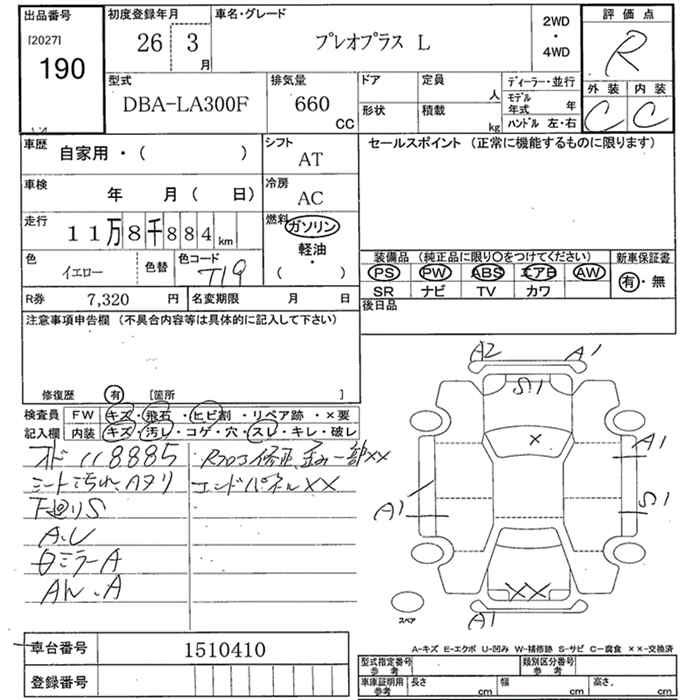 出品番号
[2027]
190
初度登録年月
26 3 月
車名・グレード
プレオプラス L
2WD
・
4WD
評価点
R
外装 内装
C C
型式
DBA-LA300F
排気量
660
CC
ドア
形状
定員
人
積載
kg
ディーラー・並行
モデル
年式 年
ハンドル 左・右
車歴
自家用・( )
シフト
AT
セールスポイント (正常に機能するものに限ります)
車検
年 月( 日)
冷房
AC
走行
11万8千884km
燃料
ガソリン
軽油・
( )
色
イエロー
色替
色コード
T19
装備品 (純正品に限り○をつけてください)
PS PW ABS エアB AW
SR ナビ TV カワ
新車保証書
有・無
R券 7,320 円
名変期限 月 日
後日品
注意事項申告欄 (不具合内容等は具体的に記入して下さい)
修復歴 有 [箇所 ]
検査員
記入欄
FW キズ・飛石・ヒビ割・リペア跡・×要
内装 キズ・汚レ・コゲ・穴・スレ・キレ・破レ
オド118885
シート汚れ、
下廻りS
ロミラーA
エンドパネルXX
A2 A1
S1
×
A1
S1
A1
XX
A1
スペア
A-キズ E-エクボ U-凹み W-補修跡 S-サビ C-腐食 ××-交換済
車台番号 1510410
登録番号
型式指定番号
参考
類別区分番号
参考
車庫証明用
参考
長さ cm
幅 cm
高さ cm